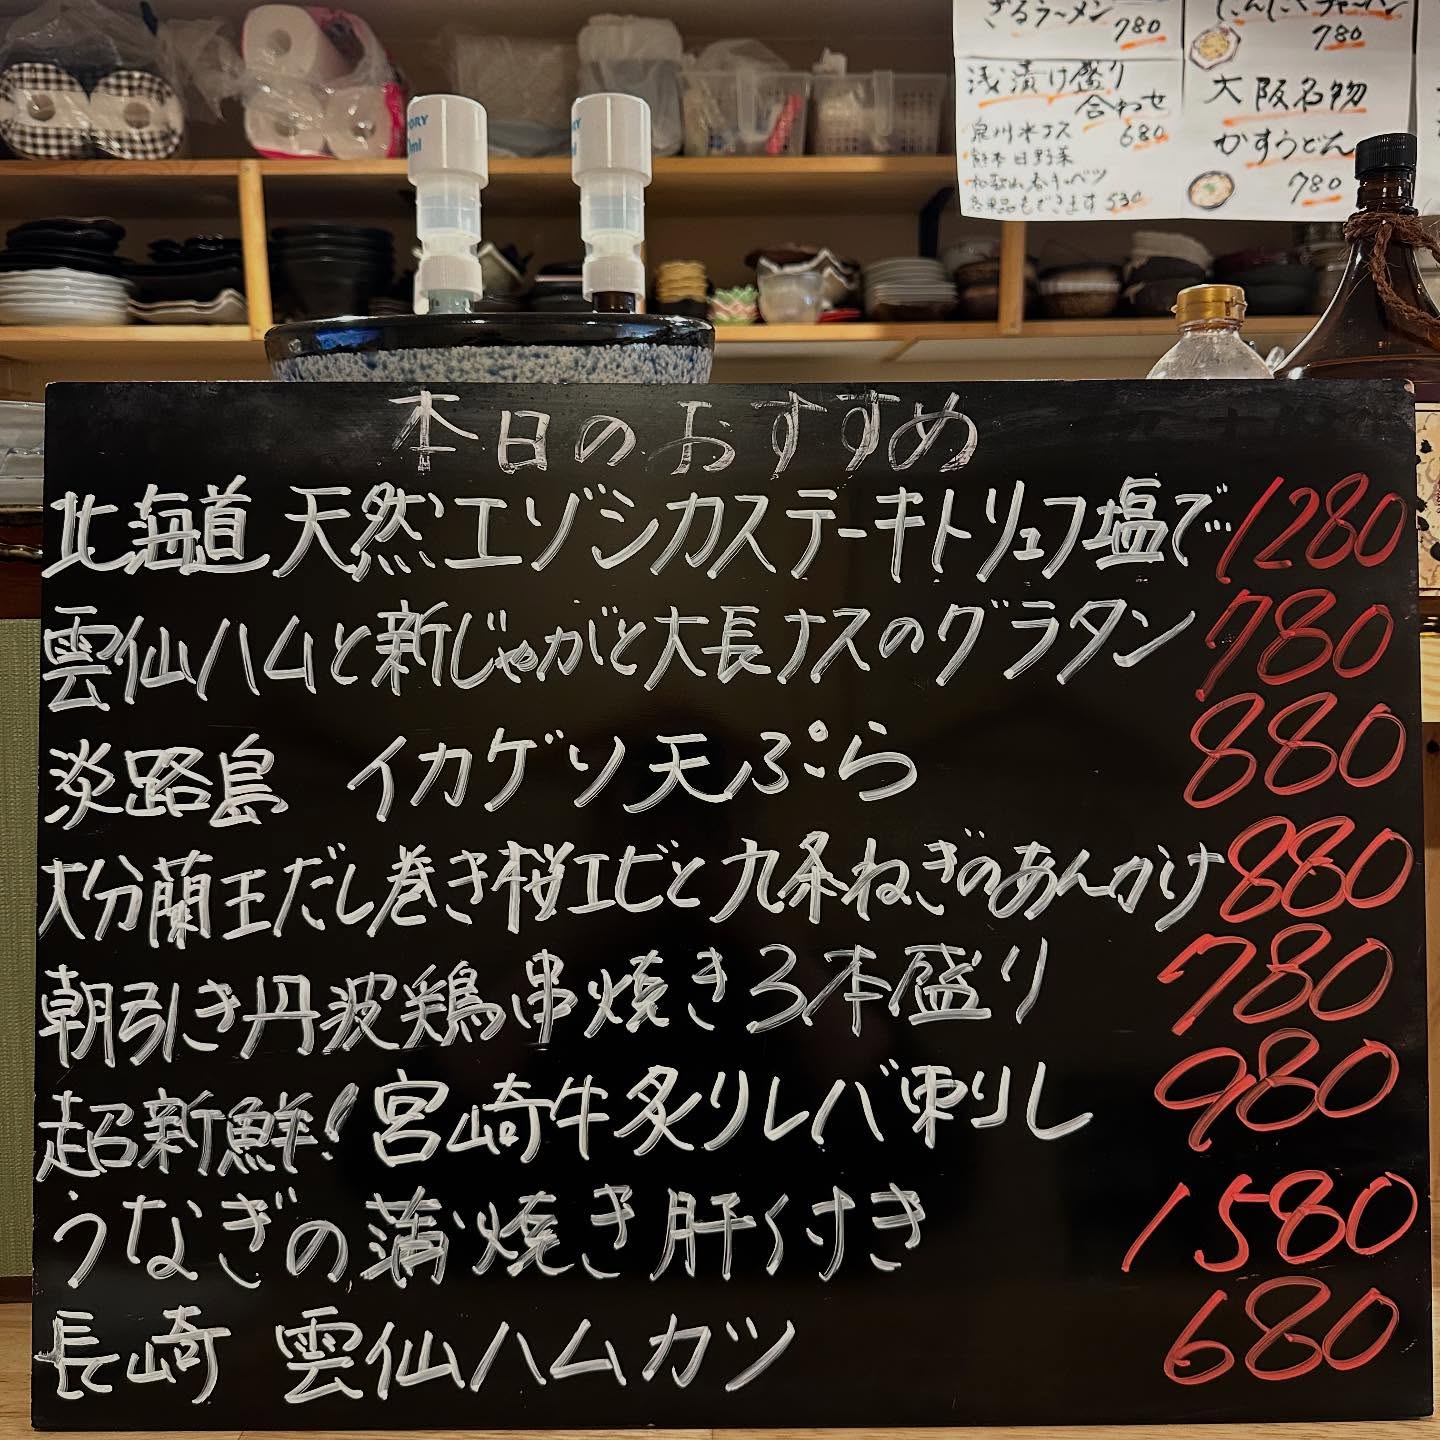 ざるラーメン
780
にんにくチャーハン
780
浅漬け盛り
合わせ
泉州水ナス 680
熊本日野菜
和歌山春キャベツ
各単品もできます 530
大阪名物
かすうどん
780
本日のおすすめ
北海道 天然エゾシカステーキトリュフ塩で… 1280
雲仙ハムと新じゃがと大長ナスのグラタン 780
淡路島 イカゲソ天ぷら 880
大分蘭王だし巻き桜エビと九条ねぎのあんかけ 880
朝引き丹波鶏串焼き3本盛り 780
超新鮮!宮崎牛炙りレバ刺し 980
うなぎの蒲焼き肝付き 1580
長崎 雲仙ハムカツ 680